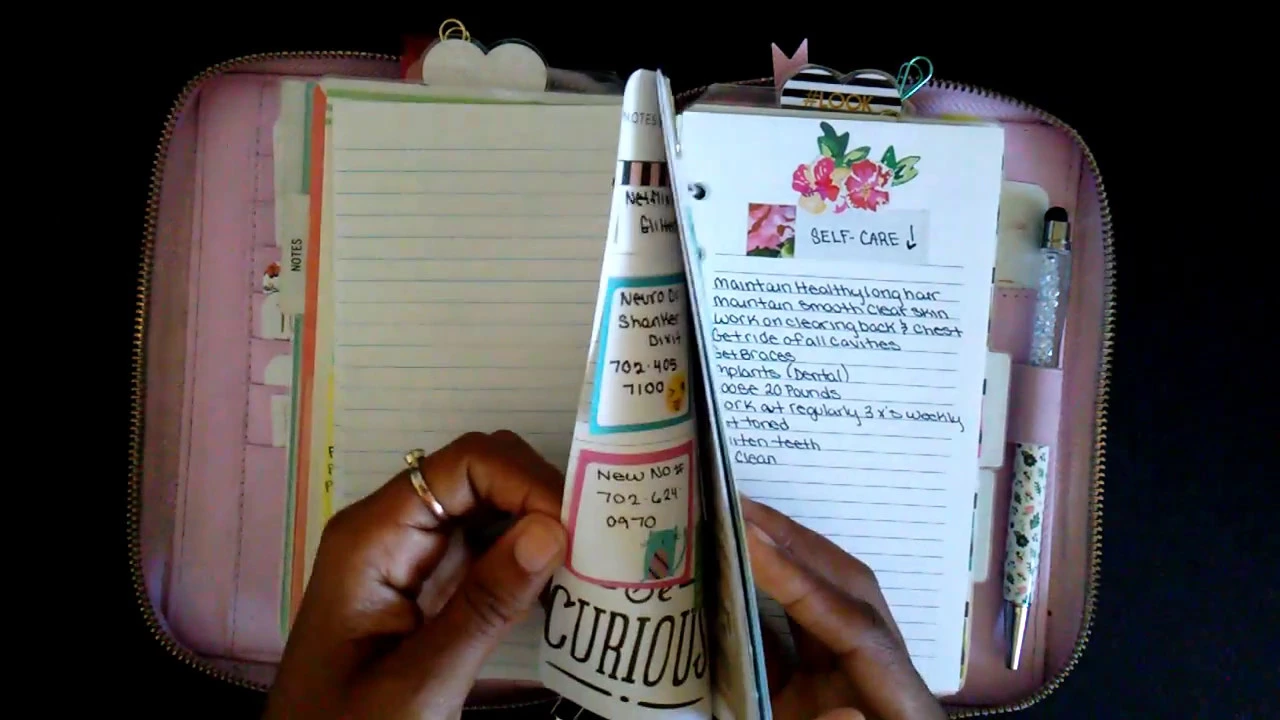 #LOOK
NOTES
NOTES
Netflix
Neuro Di
Shanker
Dixit
702·405
7100
New No#
702·624·
0970
Be
CURIOUS
SELF-CARE ↓
maintain Healthy long hair
maintain smooth clear skin
work on clearing back & chest
Get ride of all cavities
Get Braces
mplants (Dental)
oose 20 Pounds
ork out regularly 3 x's weekly
et toned
iten teeth
Clean